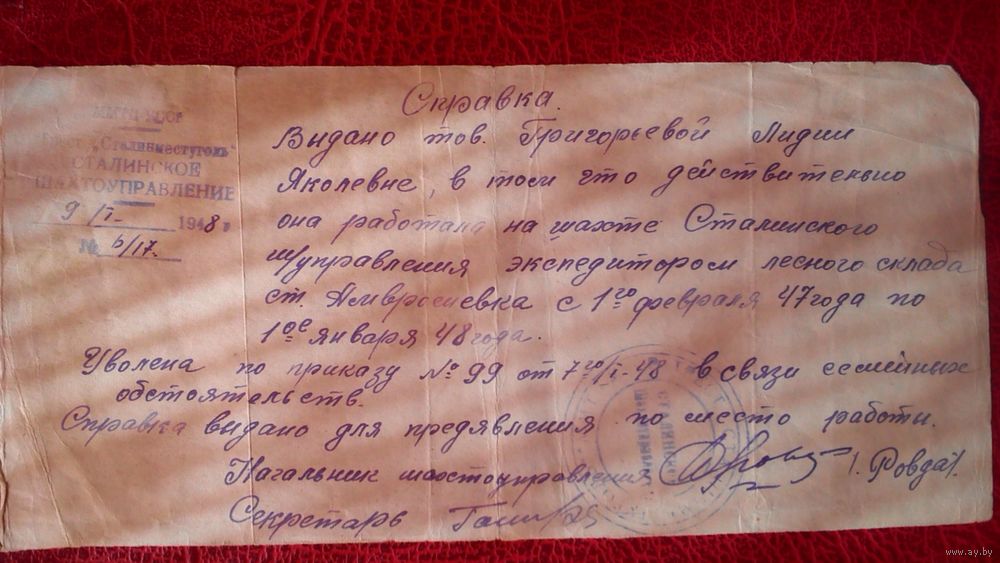 Справка.
Трест „Сталинместуголь"
СТАЛИНСКОЕ
ШАХТОУПРАВЛЕНИЕ
9/I- 1948 г
№ 6/17.
Выдано тов. Григорьевой Лидии
Яколевне, в том что действительно
она работала на шахте Сталинского
ш/управления экспедитором лесного склада
ст. Амвросиевка с 1го февраля 47 года по
1ое января 48 года.
Уволена по приказу № 99 от 7го/I-48 в связи семейных
обстоятельств.
Справка выдано для предявления по место работы.
Начальник шахтоуправления /. Ровда/.
Секретарь
www.ay.by